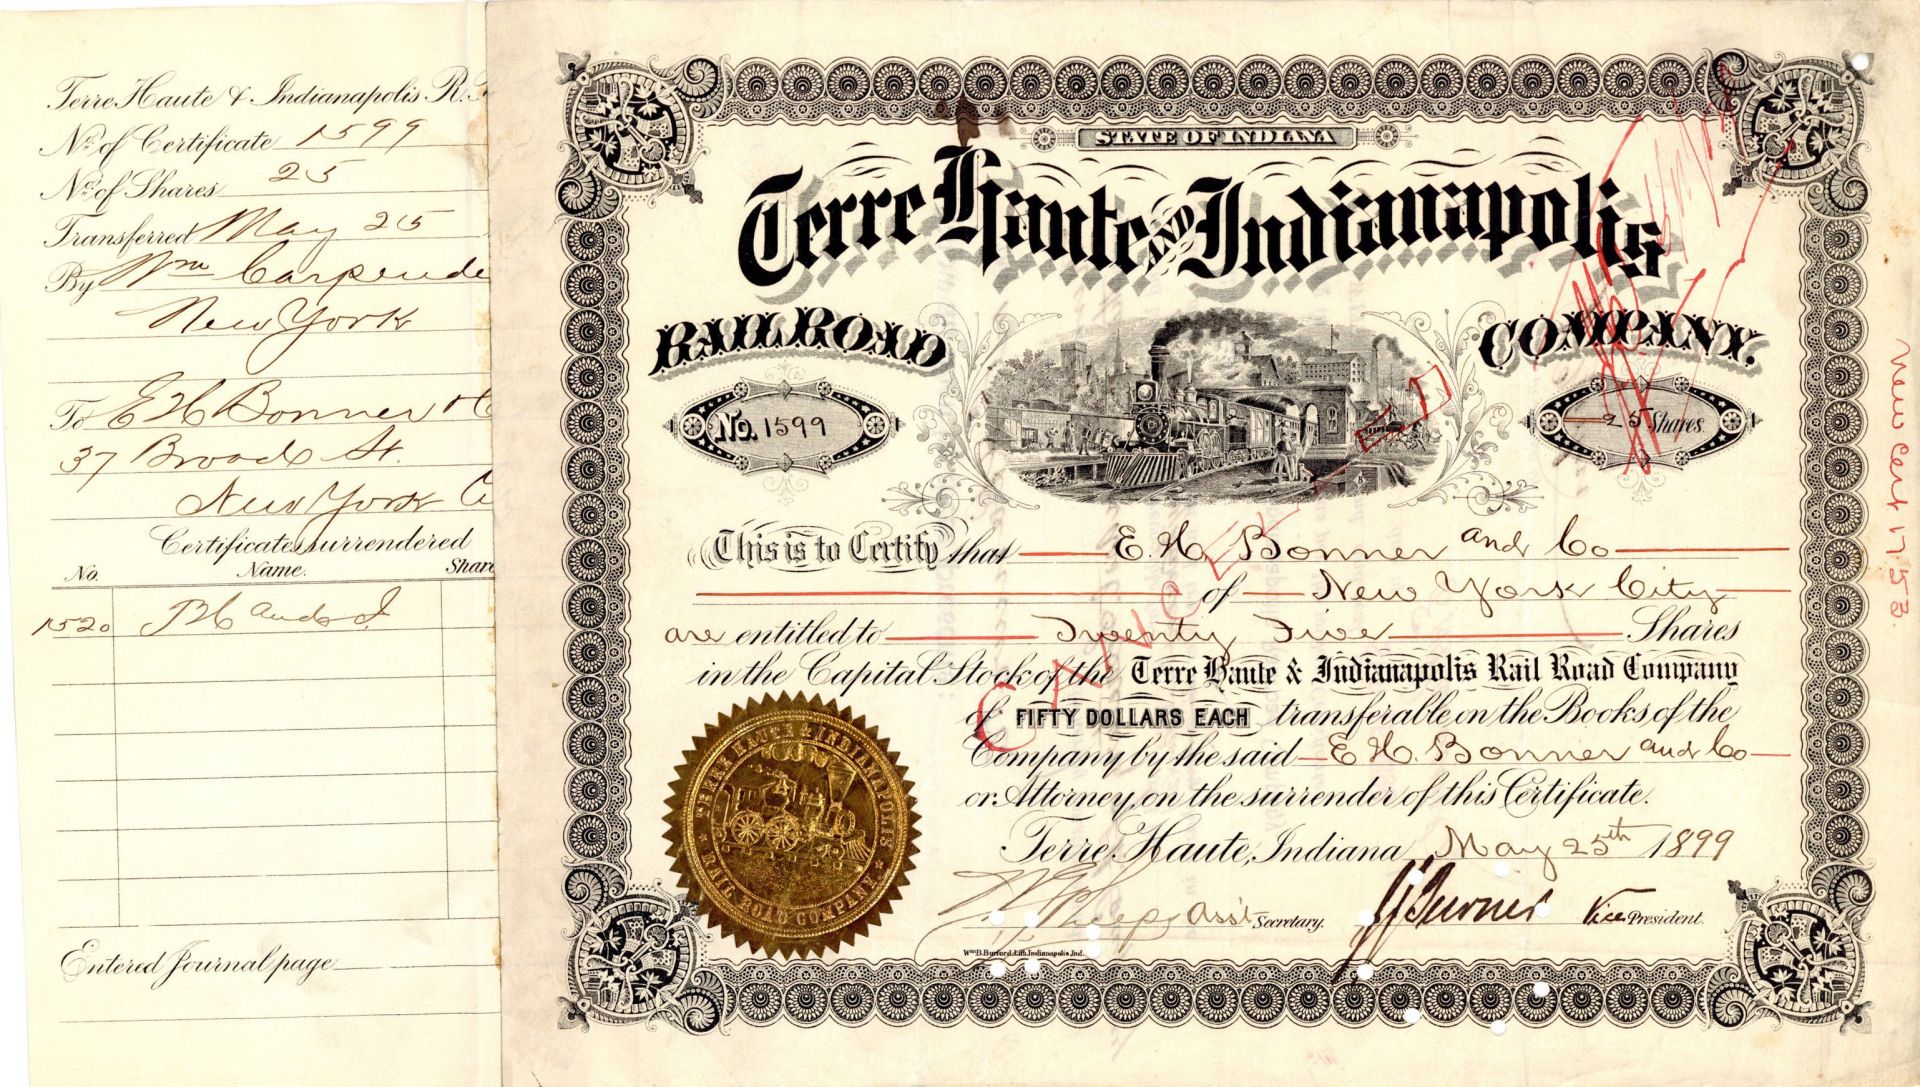 Terre Haute & Indianapolis R.
No. of Certificate 1599
No. of Shares 25
Transferred May 25
By Wm Carpende
New York
To E H Bonner & C
37 Broad St.
New York C
Certificates surrendered
No. Name. Share
1520
Entered Journal page
STATE OF INDIANA
Terre Haute AND Indianapolis
RAIL ROAD COMPANY.
No. 1599
25 Shares
This is to Certify that E. H. Bonner and Co
of New York City
are entitled to Twenty Five Shares
in the Capital Stock of the Terre Haute & Indianapolis Rail Road Company
of FIFTY DOLLARS EACH transferable on the Books of the
Company by the said E H. Bonner and Co
or Attorney, on the surrender of this Certificate.
Terre Haute, Indiana May 25th 1899
Ass't Secretary. Vice President.
Wm. B. Burford, Lith. Indianapolis, Ind.
TERRE HAUTE & INDIANAPOLIS
RAIL ROAD COMPANY
CANCELLED
New Cert 1753